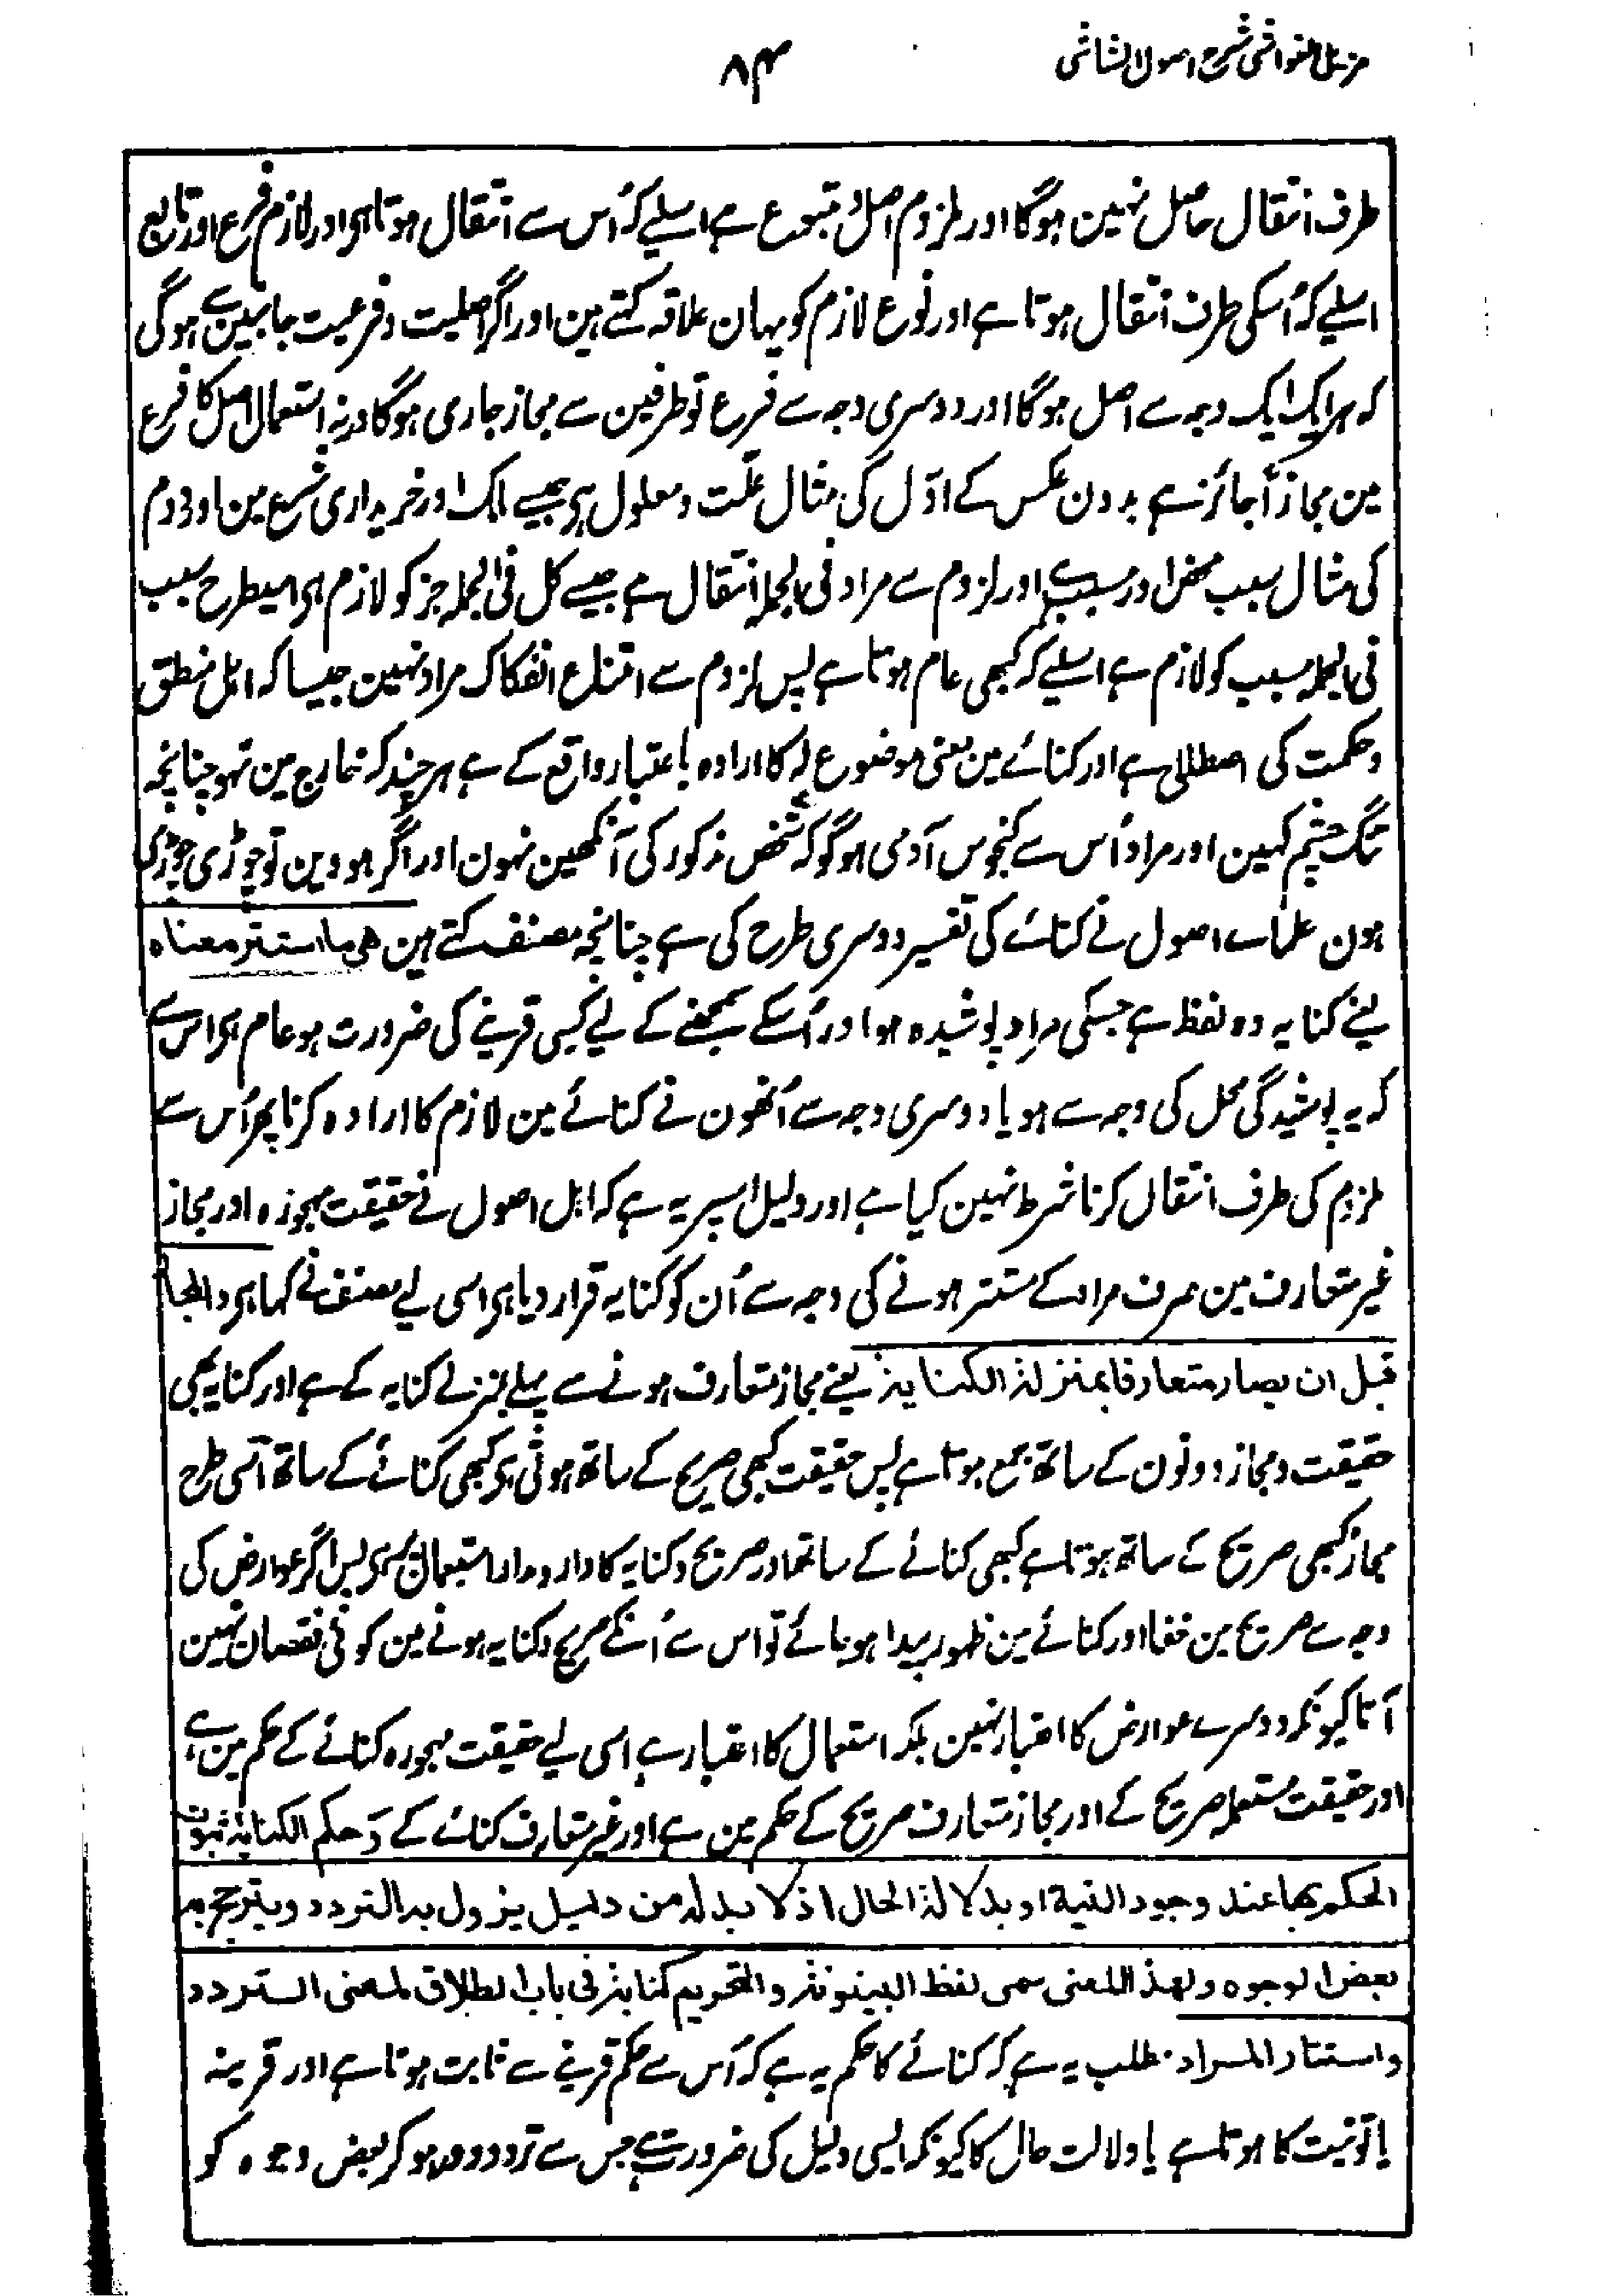 مزیل الغواشی شرح اصول الشاشی
۸۴
طرف انتقال حاصل نہین ہوگا اور ملزوم اصل و متبوع ہے اسلیے کہ اُس سے انتقال ہوتا ہی اور لازم فرع اور تابع
اسلیے کہ اُسکی طرف انتقال ہوتا ہے اور نوع لازم کو یہان علاقہ کہتے ہین اور اگر اصلیت و فرعیت جانبین سے ہوگی
کہ ہر ایک ایک وجہ سے اصل ہوگا اور دوسری وجہ سے فرع تو طرفین سے مجاز جاری ہوگا ورنہ استعمال اصل کا فرع
مین مجازاً جائز ہے بدون عکس کے اوّل کی مثال علّت و معلول ہی جیسے ملک اور خریداری شرع مین اور دوم
کی مثال سبب محض اور مسبب ہے اور لزوم سے مراد فی الجملہ انتقال ہے جیسے کل فی الجملہ جز کو لازم ہی اسیطرح سبب
فی الجملہ مسبب کو لازم ہے اسلیے کہ کبھی عام ہوتا ہے پس لزوم سے امتناع انفکاک مراد نہین جیسا کہ اہل منطق
و حکمت کی اصطلاح ہے اور کنائے مین معنی موضوع لہ کا ارادہ باعتبار واقع کے ہے ہر چند کہ خارج مین نہو چنانچہ
تنگ چشم کہین اور مراد اُس سے کنجوس آدمی ہو گو کہ شخص مذکور کی آنکھین نہون اور اگر ہووین تو چوڑی چوڑی
ہون علماے اصول نے کنائے کی تفسیر دوسری طرح کی ہے چنانچہ مصنف کہتے ہین ھی ما استتر معناہ
یعنے کنایہ وہ لفظ ہے جسکی مراد پوشیدہ ہو اور اُسکے سمجھنے کے لیے کسی قرینے کی ضرورت ہو عام ہی اس سے
کہ یہ پوشیدگی محل کی وجہ سے ہو یا دوسری وجہ سے اُنھون نے کنائے مین لازم کا ارادہ کرنا پھر اُس سے
ملزوم کی طرف انتقال کرنا شرط نہین کیا ہے اور دلیل اسپر یہ ہے کہ اہل اصول نے حقیقت مہجورہ اور مجاز
غیر متعارف مین صرف مراد کے مستتر ہونے کی وجہ سے اُن کو کنایہ قرار دیا ہی اسی لیے مصنف نے کہا ہی والمجاز
قبل ان یصار متعارفا بمنزلۃ الکنایۃ یعنے مجاز متعارف ہونے سے پہلے بمنزلے کنایہ کے ہے اور کنایہ بھی
حقیقت و مجاز دونون کے ساتھ جمع ہوتا ہے پس حقیقت کبھی صریح کے ساتھ ہوتی ہی کبھی کنائے کے ساتھ اسی طرح
مجاز کبھی صریح کے ساتھ ہوتا ہے کبھی کنائے کے ساتھ اور صریح و کنایہ کا دار و مدار استعمال پر ہی پس اگر عوارض کی
وجہ سے صریح مین خفا اور کنائے مین ظہور پیدا ہو جائے تو اس سے اُنکے صریح و کنایہ ہونے مین کوئی نقصان نہین
آتا کیونکہ دوسرے عوارض کا اعتبار نہین بلکہ استعمال کا اعتبار ہے اسی لیے حقیقت مہجورہ کنائے کے حکم مین ہے
اور حقیقت مستعملہ صریح کے اور مجاز متعارف صریح کے حکم مین ہے اور غیر متعارف کنائے کے وحکم الکنایۃ ثبوت
الحکم بھا عند وجود النیۃ او بدلالۃ الحال اذ لا بد لہ من دلیل یزول بہ التردد ویترجح بہ
بعض الوجوہ ولھذا المعنی سمی لفظ البینونۃ والتحریم کنایۃ فی باب الطلاق لمعنی التردد
واستتار المراد مطلب یہ ہے کہ کنائے کا حکم یہ ہے کہ اُس سے حکم قرینے سے ثابت ہوتا ہے اور قرینہ
یا تو نیت کا ہوتا ہے یا دلالت حال کا کیونکہ ایسی دلیل کی ضرورت ہے جس سے تردد دور ہو کر بعض وجوہ کو